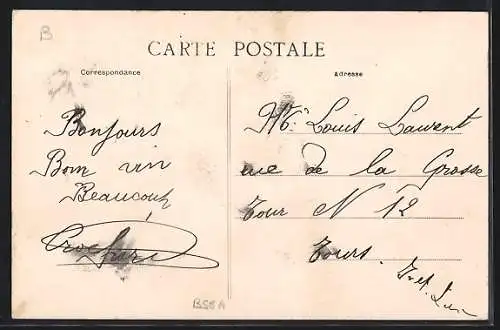 B
CARTE POSTALE
Correspondance
Adresse
Bonjours
Bom vin
Beaucoup
Mr Louis Laurent
rue de la Grosse
Tour N 12
Tours.
BS8A